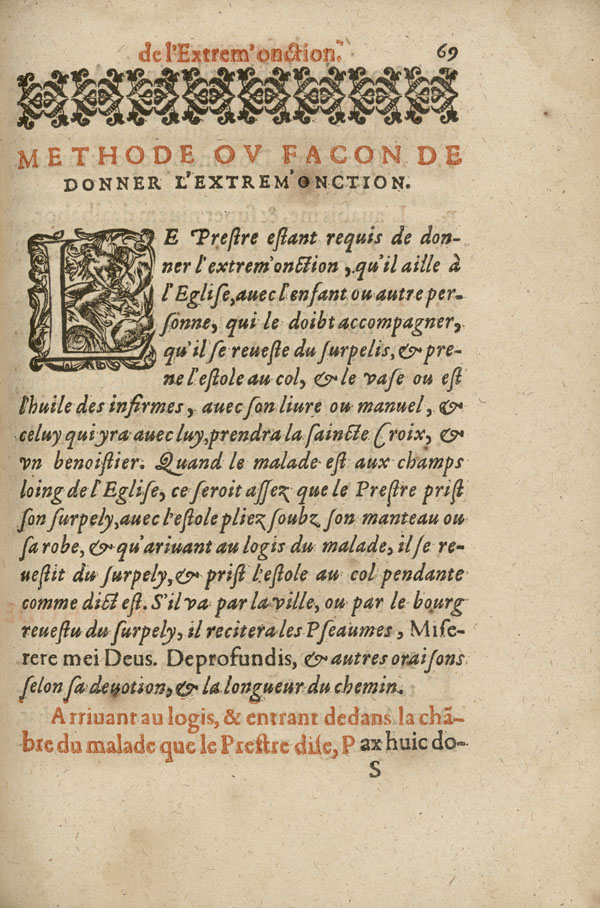 de l'Extrem'onction. 69
METHODE OV FACON DE
DONNER L'EXTREM'ONCTION.
LE Prestre estant requis de don-
ner l'extrem'onction, qu'il aille à
l'Eglise, auec l'enfant ou autre per-
sonne, qui le doibt accompagner,
qu'il se reueste du surpelis, & pre-
ne l'estole au col, & le vase ou est
l'huile des infirmes, auec son liure ou manuel, &
celuy qui yra auec luy, prendra la saincte Croix, &
vn benoistier. Quand le malade est aux champs
loing de l'Eglise, ce seroit assez que le Prestre prist
son surpely, auec l'estole pliez soubz son manteau ou
sa robe, & qu'ariuant au logis du malade, il se re-
uestit du surpely, & prist l'estole au col pendante
comme dict est. S'il va par la ville, ou par le bourg
reuestu du surpely, il recitera les Pseaumes, Mise-
rere mei Deus. Deprofundis, & autres oraisons
selon sa deuotion, & la longueur du chemin.
Arriuant au logis, & entrant dedans la chã-
bre du malade que le Prestre dise, Pax huic do-
S